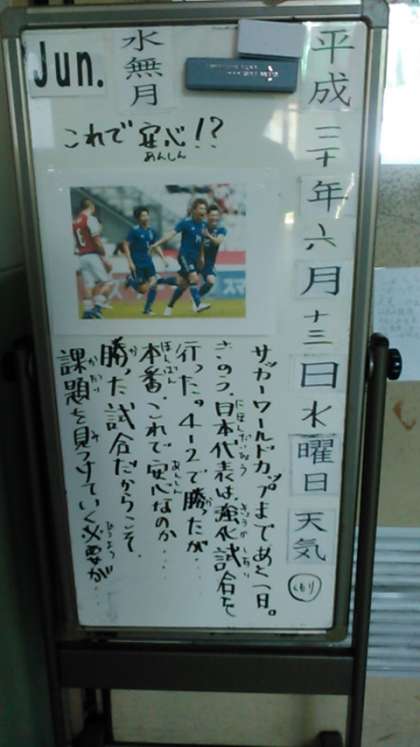 平成三十年六月十三日水曜日天気くもり
Jun.
水無月
これで安心!?
あんしん
サッカーワールドカップまであと一日。
きのう、日本代表は、強化試合を
にほんだいひょう
きょうかしあい
行った。4-2で勝ったが…
本番、これで安心なのか…
ほんばん
あんしん
勝った試合だからこそ、
課題を見つけていく必要が…
かだい
み
ひつよう